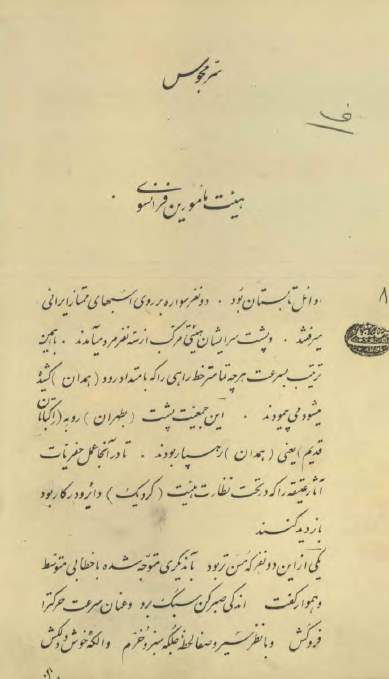 سر مجوس
هیئت مأمورین فرانسوی
اوائل تابستان بود . دو نفر سواره بر روی اسبهای ممتاز ایرانی
میرفتند . و پشت سر ایشان هیئتی مرکب از سه نفر مرد میآمدند . بهمین
ترتیب بسرعت هرچه تمامتر خط راهی را که بامتداد رود (همدان) کشیده
میشود می پیمودند . این جمعیت پشت (بطهران) رو به (اکباتان
قدیم) یعنی (همدان) رهسپار بودند . تا در آنجا عمل حفریات
آثار عتیقه را که در تحت نظارت هیئت () دائر و در کار بود
بازدید کنند
یکی از این دو نفر که مسن تر بود بآندیگری متوجه شده با خطابی متوسط
و هموار گفت اندکی صبر کن سبک برو و عنان سرعت حرکت را
فروکش و با نظر سیر و صفا لحظهٔ جلگه سبز و خرم و الکهٔ خوش و دلکش
۸